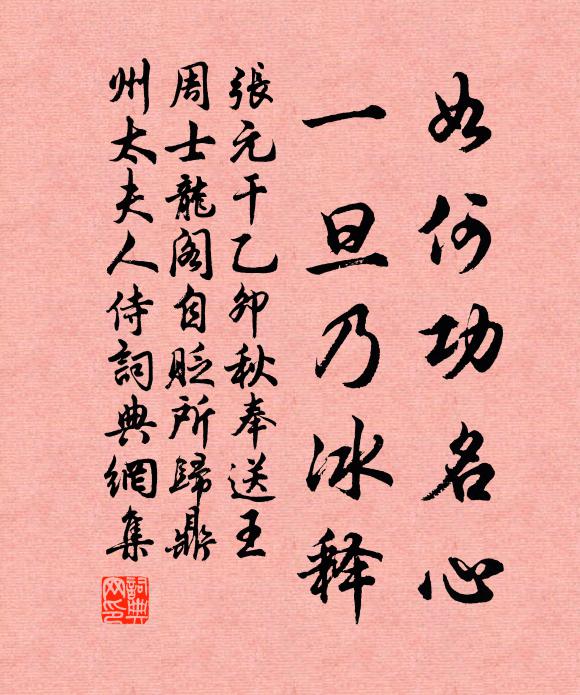 如何功名心
一旦乃冰释
張元干乙卯秋奉送王
周士龍阁自贬所歸鼎
州太夫人侍詞典網集
詞典
网印